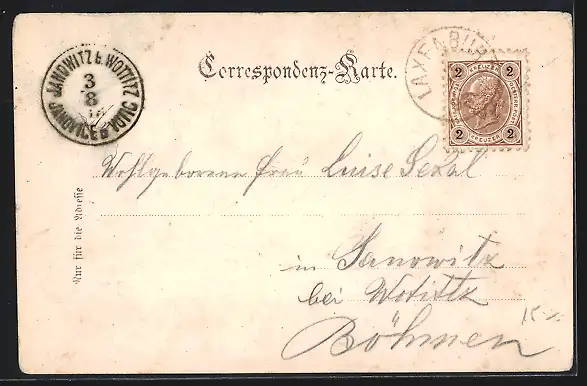 JANOWITZ b. WOTTITZ
3
8
JANOVICE
Correspondenz-Karte.
LAXENBURG
2 KREUZER 2
2 KREUZER 2
Nur für die Adresse
Wohlgeborene Frau Luise
in Janowitz
bei Wotitz
Böhmen